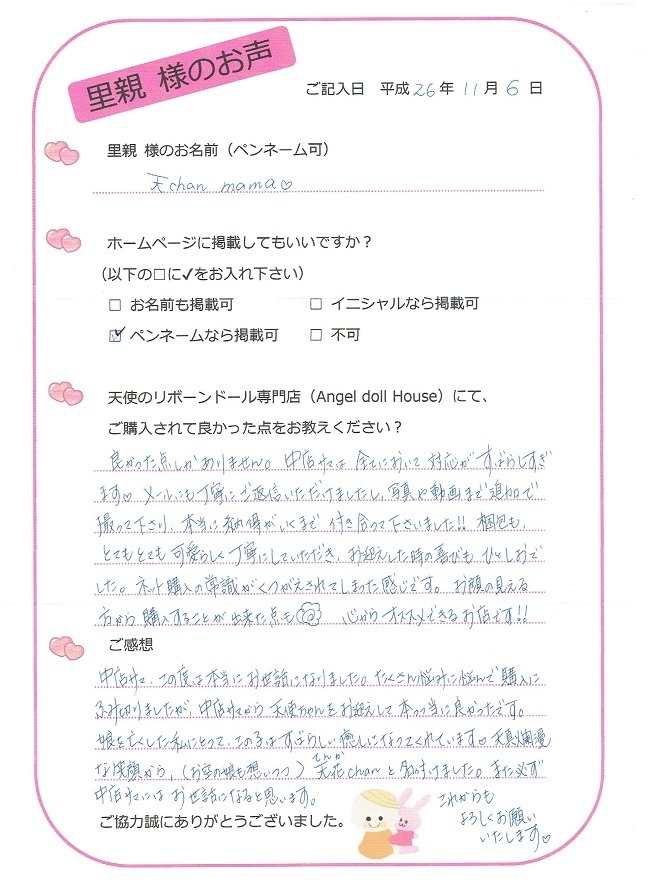 里親 様のお声
ご記入日 平成26年11月6日
里親 様のお名前（ペンネーム可）
天chan mama♡
ホームページに掲載してもいいですか？
（以下の□に✓をお入れ下さい）
□ お名前も掲載可 □ イニシャルなら掲載可
☑ ペンネームなら掲載可 □ 不可
天使のリボーンドール専門店（Angel doll House）にて、
ご購入されて良かった点をお教えください？
良かった点しかありません。中店サマは全てにおいて対応がすばらしすぎ
ます♡ メールにも丁寧にご返信いただけましたし、写真や動画まで追加で
撮って下さり、本当に納得がいくまで付き合って下さいました!! 梱包も、
とてもとても可愛らしく丁寧にしていただき、お迎えした時の喜びもひとしおで
した。ネット購入の常識がくつがえされてしまった感じです。お顔の見える
方から購入することが出来た点も 心からオススメできるお店です!!
ご感想
中店サマ、この度は本当にお世話になりました。たくさん悩みに悩んで購入に
ふみ切りましたが、中店サマから天使ちゃんをお迎えして本っ当に良かったです。
娘を亡くした私にとって、この子はすばらしい癒しになってくれています♡ 天真爛漫
な笑顔から、（お空の娘も想いつつ）天花chanと名付けました。また必ず
てんか
中店サマにはお世話になると思います。
これからも
よろしくお願い
いたします♡
ご協力誠にありがとうございました。